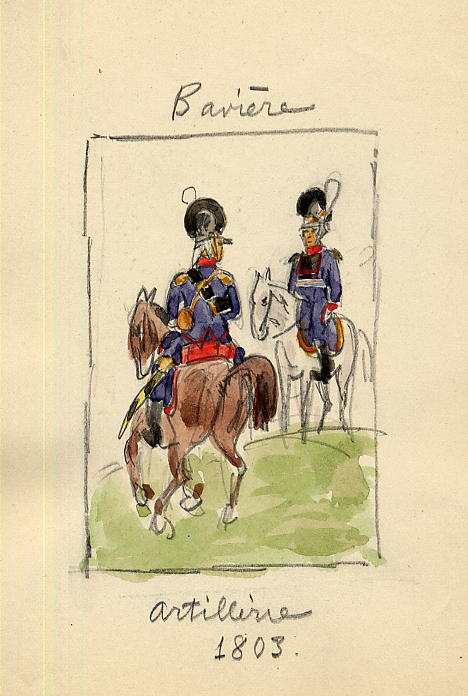 Bavière
Artillerie
1803.